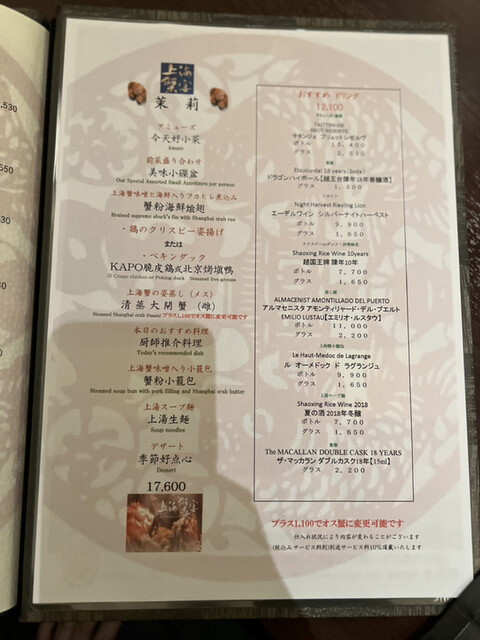 上海
蟹宴
茉莉
アミューズ
今天好小菜
Amuse
前菜盛り合わせ
美味小碟盆
Our Special Assorted Small Appetizers per person
上海蟹味噌と海鮮入りフカヒレ煮込み
蟹粉海鮮燴翅
Braised supreme shark's fin with Shanghai crab roe
・鶏のクリスピー姿揚げ
または
・ペキンダック
KAPO脆皮鶏或北京烤填鴨
上海蟹の姿蒸し（メス）
清蒸大閘蟹（雌）
Steamed Shanghai crab
プラス1,100でオス蟹に変更可能です
本日のおすすめ料理
厨師推介料理
Today's recommended dish
上海蟹味噌入り小籠包
蟹粉小籠包
Steamed soup bun with pork filling and Shanghai crab butter
上湯スープ麺
上湯生麺
Soup noodles
デザート
季節好点心
Dessert
17,600
おすすめ ドリンク
12,100
TAITTINGER
BRUT RESERVE
テタンジェ ブリュット レゼルヴ
ボトル 15,400
グラス 2,530
前菜
Etsuoutai 18 years (Soda)
ドラゴンハイボール【越王台陳年18年審醸酒】
グラス 1,300
Night Harvest Riesling Lion
エーデルワイン シルバーナイトハーベスト
ボトル 9,900
グラス 1,650
Shaoxing Rice Wine 10years
越国王牌 陳年10年
ボトル 7,700
グラス 1,650
蒸し蟹
ALMACENIST AMONTILLADO DEL PUERTO
アルマセニスタ アモンティリャード・デル・プエルト
EMILIO LUSTAU【エミリオ・ルスタウ】
ボトル 11,000
グラス 2,200
Le Haut-Medoc de Lagrange
ル オーメドック ド ラグランジュ
ボトル 9,900
グラス 1,650
上湯スープ麺
Shaoxing Rice Wine 2018
夏の酒 2018年冬醸
ボトル 7,700
グラス 1,650
The MACALLAN DOUBLE CASK 18 YEARS
ザ・マッカラン ダブルカスク18年【15ml】
グラス 2,200
プラス1,100でオス蟹に変更可能です
仕入れ状況により内容が変わることがございます
(税込みサービス料別)別途サービス料10%頂戴いたします